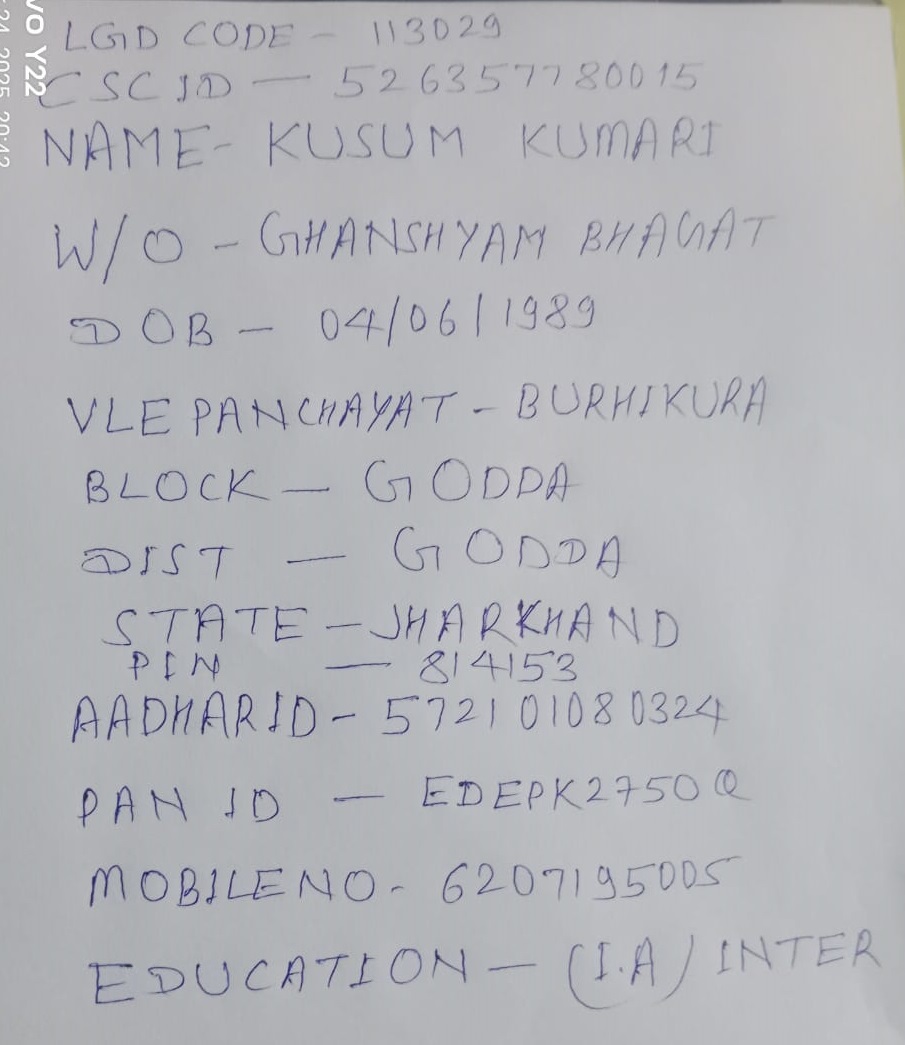 LGD CODE - 113029
CSC ID - 526357780015
NAME- KUSUM KUMARI
W/O - GHANSHYAM BHAGAT
DOB - 04/06/1989
VLE PANCHAYAT - BURHIKURA
BLOCK - GODDA
DIST - GODDA
STATE - JHARKHAND
PIN - 814153
AADHAR ID - 572101080324
PAN ID - EDEPK2750Q
MOBILE NO- 6207195005
EDUCATION - (I.A) INTER
VO Y22